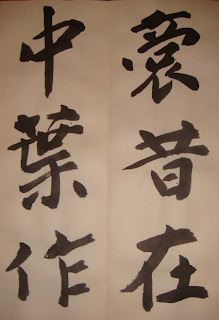 曩昔在
中葉作